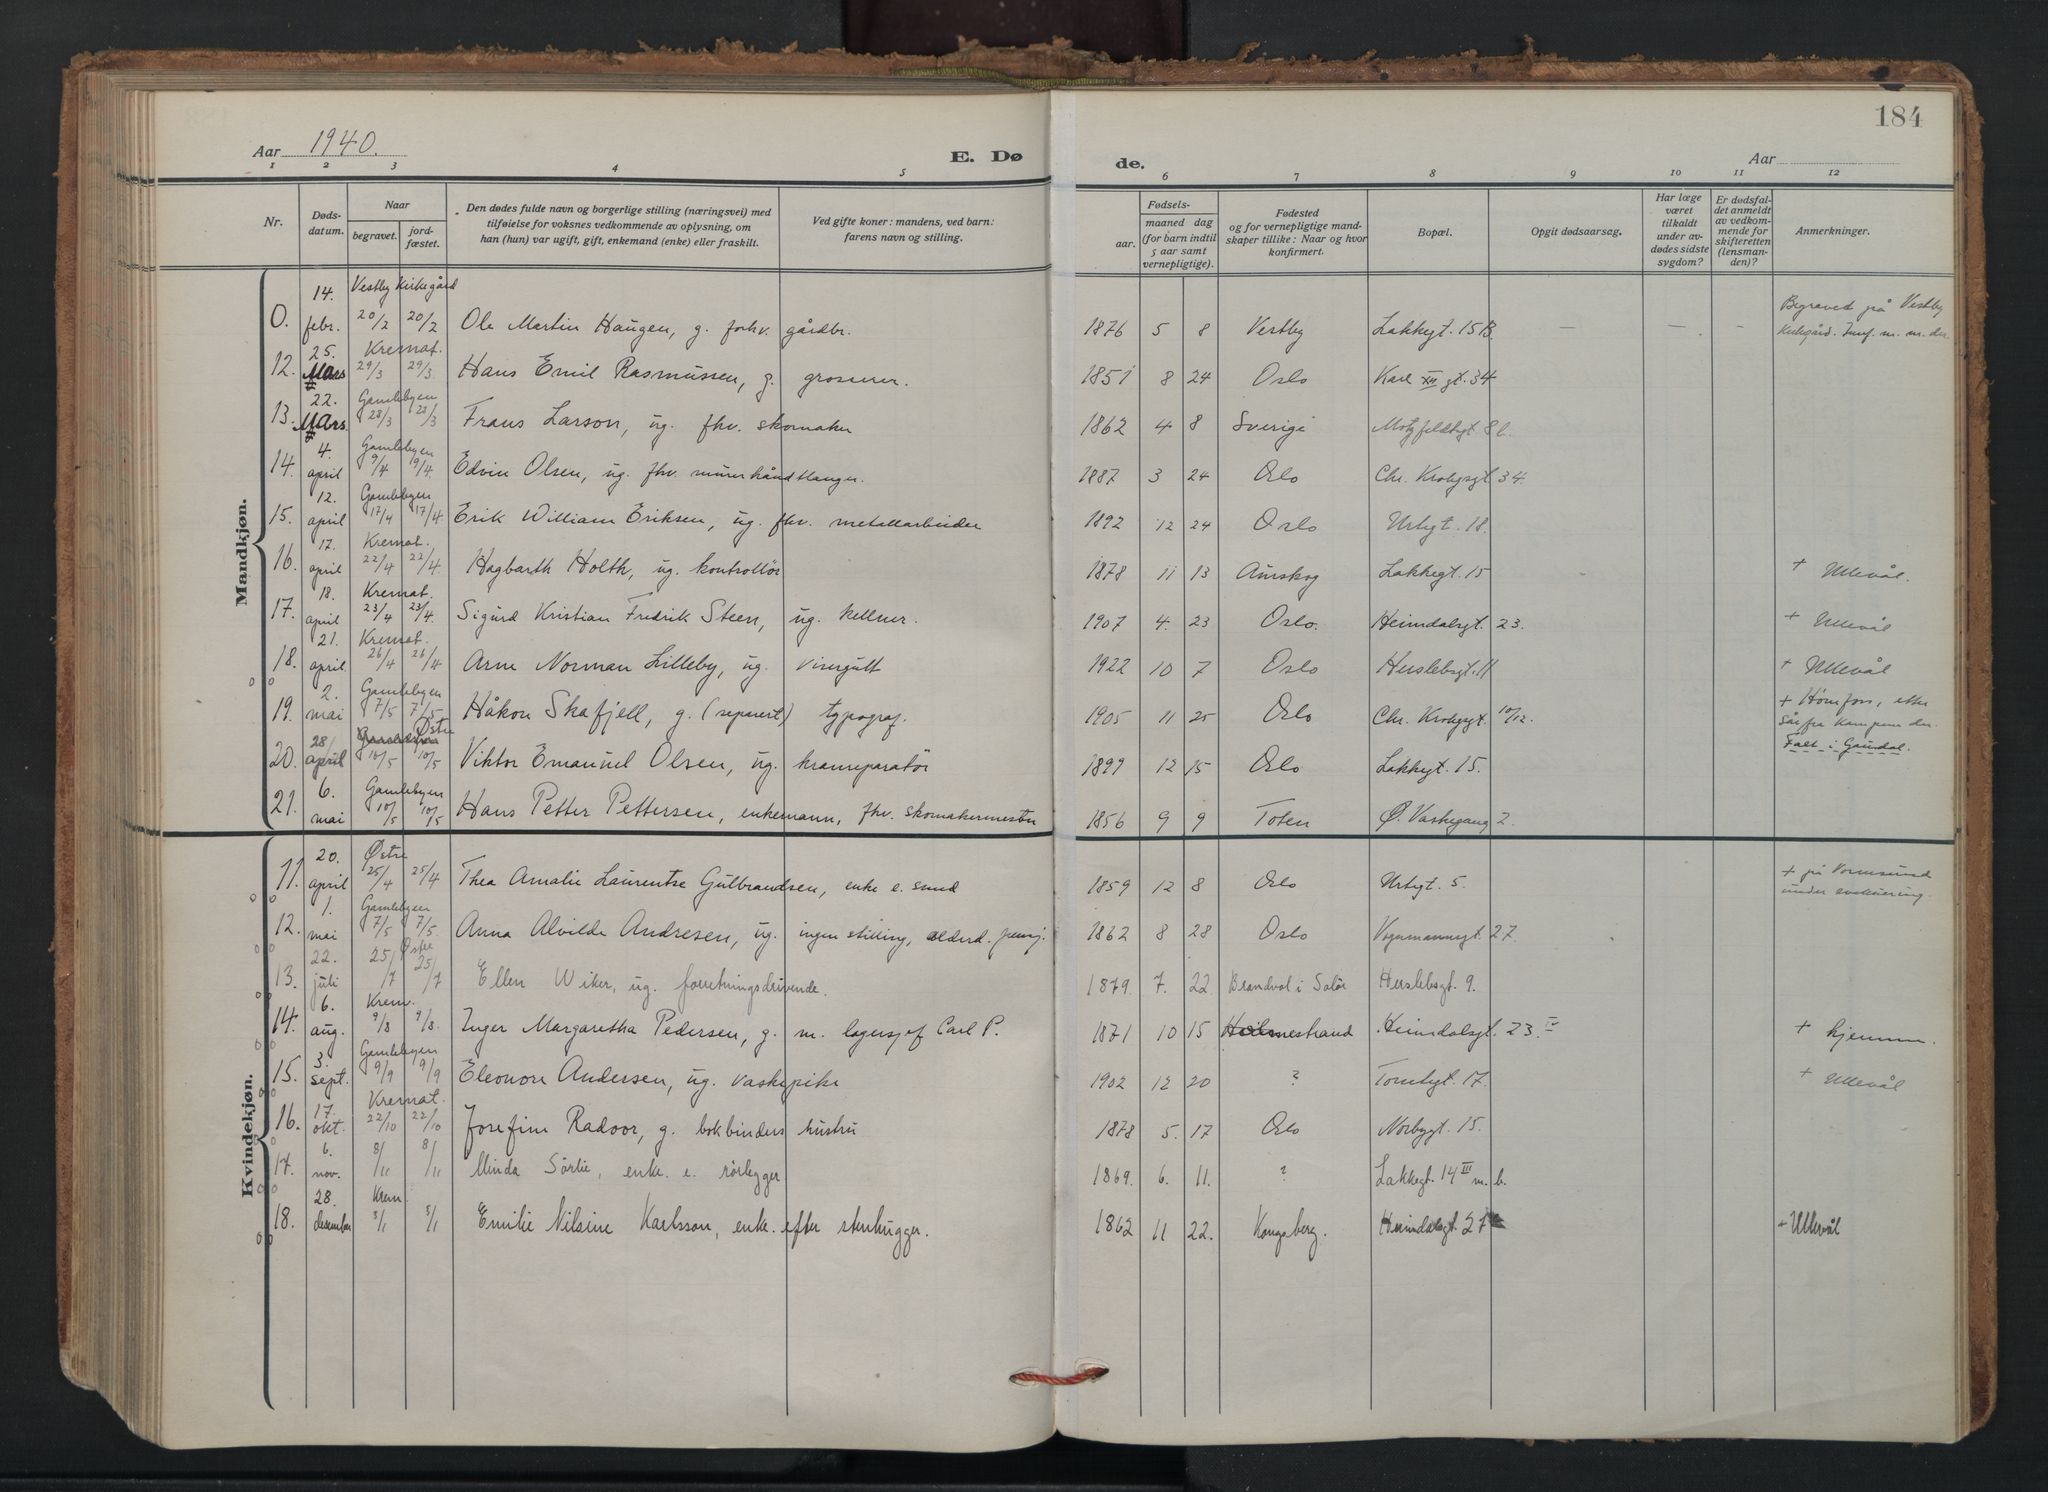 184
Aar 1940.
E. Dø
de.
Aar
1 2 3 4 5 6 7 8 9 10 11 12
Nr.
Døds-
datum.
Naar
begravet.
jord-
fæstet.
Den dødes fulde navn og borgerlige stilling (næringsvei) med
tilføielse for voksnes vedkommende av oplysning, om
han (hun) var ugift, gift, enkemand (enke) eller fraskilt.
Ved gifte koner: mandens, ved barn:
farens navn og stilling.
Fødsels-
aar.
maaned dag
(for barn indtil
5 aar samt
vernepligtige).
Fødested
og for vernepligtige mand-
skaper tillike: Naar og hvor
konfirmert.
Bopæl.
Opgit dødsaarsag.
Har læge
været
tilkaldt
under av-
dødes sidste
sygdom?
Er dødsfal-
det anmeldt
av vedkom-
mende for
skifteretten
(lensman-
den)?
Anmerkninger.
Mandkjøn.
14. Vestby kirkegård Begravet på Vestby
0. febr. 20/2 20/2 Ole Martin Haugen, g. forhv. gårdbr. 1876 5 8 Vestby Lakkegt. 15B. — — — kirkegård.
25. Kremat.
12. Mars 29/3 29/3 Hans Emil Rasmussen, g. grosserer. 1851 8 24 Oslo Karl XII gt. 34
22. Gamlebyen
13. Mars 28/3 28/3 Frans Larson, ug. fhv. skomaker 1862 4 8 Sverige Motzfeldtsgt. 8b.
4. Gamlebyen
14. april 9/4 9/4 Edvin Olsen, ug. fhv. murerhåndtlanger. 1887 3 24 Oslo Chr. Krohgsgt. 34
12. Gamlebyen
15. april 17/4 17/4 Erik William Eriksen, ug. fhv. metallarbeider 1892 12 24 Oslo Urtegt. 18.
17. Kremat.
16. april 22/4 22/4 Hagbarth Holth, ug. kontrollør 1878 11 13 Aurskog Lakkegt. 15 + Ullevål.
18. Kremat.
17. april 23/4 23/4. Sigurd Kristian Fredrik Steen, ug. kellner. 1907 4. 23 Oslo. Heimdalsgt. 23. + Ullevål
21. Kremat.
18. april 26/4 26/4 Arne Norman Lilleby, ug. visergutt 1922 10 7 Oslo Herslebsgt. 11 + Ullevål
2. Gamlebyen + Hønefoss, etter
19. mai 7/5 7/5 Håkon Skafjell, g. (separert) typograf. 1905 11 25 Oslo Chr. Krohgsgt. 10/12. sår fra kampene der.
28/ Østre Falt i Gaundal.
20. april 10/5 10/5 Viktor Emanuel Olsen, ug. kranreparatør 1899 12 15 Oslo Lakkegt. 15.
6. Gamlebyen
21. mai 10/5 10/5 Hans Petter Pettersen, enkemann, fhv. skomakermester 1856 9 9 Toten Ø. Vaskegang 2.
Kvindekjøn.
20. Østre + på Vormsund
11. april 25/4 25/4 Thea Amalie Laurentse Gulbrandsen, enke e. smed 1859 12 8 Oslo Urtegt. 5. under evakuering.
1. Gamlebyen
12. mai 7/5 7/5 Anna Alvilde Andresen, ug. ingen stilling, alderd. pensj. 1862 8 28 Oslo Vognmannsgt. 27.
22. Østre
13. juli 25/7 25/7 Ellen Wiker, ug. forretningsdrivende. 1879. 7. 22. Brandval i Solør Herslebsgt. 9.
6. Krem.
14. aug. 9/8 9/8. Inger Margaretha Pedersen, g. m. lagersjef Carl P. 1871 10 15 Holmestrand Heimdalsgt. 23. + hjemme.
3. Gamlebyen
15. sept. 9/9 9/9 Eleonore Andersen, ug. vaskepike 1902 12 20 ? Tomtegt. 17. + Ullevål
17. Kremat.
16. okt. 22/10 22/10 Josefine Radoor, g. bokbinders hustru 1878 5. 17 Oslo Norbygt. 15.
6.
17. nov. 8/11 8/11 Minda Sørlie, enke e. rørlegger 1869. 6. 11. ? Lakkegt. 14 III m. b.
28. Krem
18. desember 3/1 3/1 Emilie Nilsine Karlsson, enke efter stenhugger. 1862 11 22. Kongsberg. Heimdalsgt. 27 + Ullevål